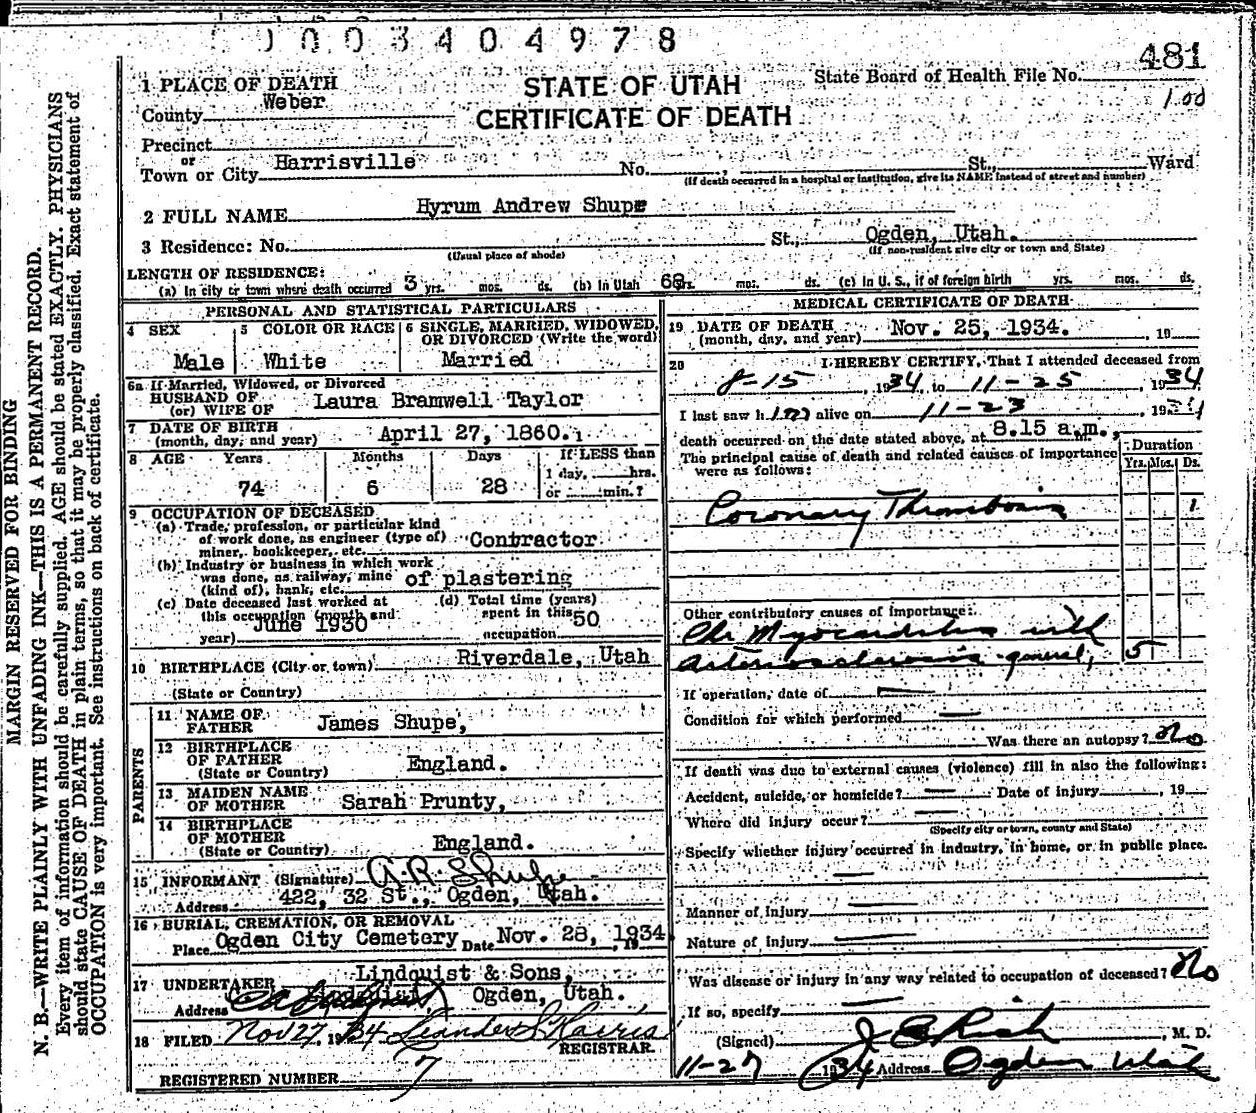 1003404978
481
1 PLACE OF DEATH
STATE OF UTAH
State Board of Health File No.
1.00
County Weber
CERTIFICATE OF DEATH
Precinct
or
Town or City Harrisville No. , St., Ward
(If death occurred in a hospital or institution, give its NAME instead of street and number)
2 FULL NAME Hyrum Andrew Shupe
3 Residence: No. St., Ogden, Utah.
(Usual place of abode) (If non-resident give city or town and State)
LENGTH OF RESIDENCE:
(a) In city or town where death occurred 3 yrs. mos. ds. (b) In Utah 68 yrs. mos. ds. (c) In U. S., if of foreign birth yrs. mos. ds.
PERSONAL AND STATISTICAL PARTICULARS
4 SEX 5 COLOR OR RACE 6 SINGLE, MARRIED, WIDOWED,
OR DIVORCED (Write the word)
Male White Married
6a If Married, Widowed, or Divorced
HUSBAND OF
(or) WIFE OF Laura Bramwell Taylor
7 DATE OF BIRTH
(month, day, and year) April 27, 1860.
8 AGE Years Months Days If LESS than
1 day, hrs.
74 6 28 or min.?
9 OCCUPATION OF DECEASED
(a) Trade, profession, or particular kind
of work done, as engineer (type of)
miner, bookkeeper, etc. Contractor
(b) Industry or business in which work
was done, as railway, mine
(kind of), bank, etc. of plastering
(c) Date deceased last worked at (d) Total time (years)
this occupation (month and spent in this 50
year) June 1930 occupation
10 BIRTHPLACE (City or town) Riverdale, Utah
(State or Country)
PARENTS
11 NAME OF
FATHER James Shupe,
12 BIRTHPLACE
OF FATHER
(State or Country) England.
13 MAIDEN NAME
OF MOTHER Sarah Prunty,
14 BIRTHPLACE
OF MOTHER
(State or Country) England.
15 INFORMANT (Signature) A. R. Shupe
Address 422, 32 St., Ogden, Utah.
16 BURIAL, CREMATION, OR REMOVAL
Place Ogden City Cemetery Date Nov. 28, 1934
17 UNDERTAKER Lindquist & Sons,
Address Ogden, Utah.
18 FILED Nov 27 1934 Leander S Harris
REGISTRAR.
REGISTERED NUMBER 7
MEDICAL CERTIFICATE OF DEATH
19 DATE OF DEATH
(month, day, and year) Nov. 25, 1934. 19
20 I HEREBY CERTIFY, That I attended deceased from
8-15, 1934 to 11-25, 1934
I last saw him alive on 11-23, 1934
death occurred on the date stated above, at 8.15 a.m.,
The principal cause of death and related causes of importance
were as follows:
Duration
Yrs. Mos. Ds.
Coronary Thrombosis 1
Other contributory causes of importance:
Chr Myocarditis with
arteriosclerosis general, 5
If operation, date of
Condition for which performed
Was there an autopsy? No
If death was due to external causes (violence) fill in also the following:
Accident, suicide, or homicide? Date of injury , 19
Where did injury occur?
(Specify city or town, county and State)
Specify whether injury occurred in industry, in home, or in public place.
Manner of Injury
Nature of Injury
Was disease or injury in any way related to occupation of deceased? No
If so, specify
(Signed) J E Rich, M. D.
11-27 1934 Address Ogden Utah
MARGIN RESERVED FOR BINDING
N. B.—WRITE PLAINLY WITH UNFADING INK—THIS IS A PERMANENT RECORD.
Every item of information should be carefully supplied. AGE should be stated EXACTLY. PHYSICIANS
should state CAUSE OF DEATH in plain terms, so that it may be properly classified. Exact statement of
OCCUPATION is very important. See instructions on back of certificate.